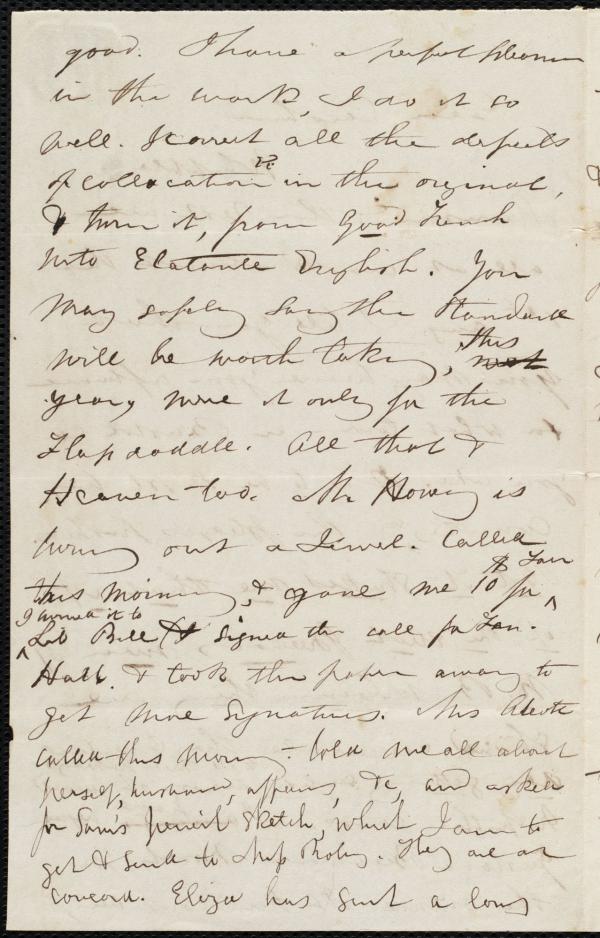 good. I have a perfect pleasure
in the work, I do it so
well. I correct all the defects
of collocation &c. in the original,
& turn it, from Good French
into Elatante English. You
may safely say the Standard
will be worth taking, this
year, were it only for the
Flapdoddle. All that &
Heaven too. Mr Hovey is
turning out a Jewel. Called
this morning, & gave me 10 $ for Fair
I owned it to
Lib Bell & signed the call for Fan.
Hall. & took the paper away to
get more signatures. Mrs Alcott
called this morng - told me all about
herself, husband, affairs, &c, and asked
for Sam's pencil sketch, which I am to
get & send to Miss Thobey. They are at
Concord. Eliza has sent a long